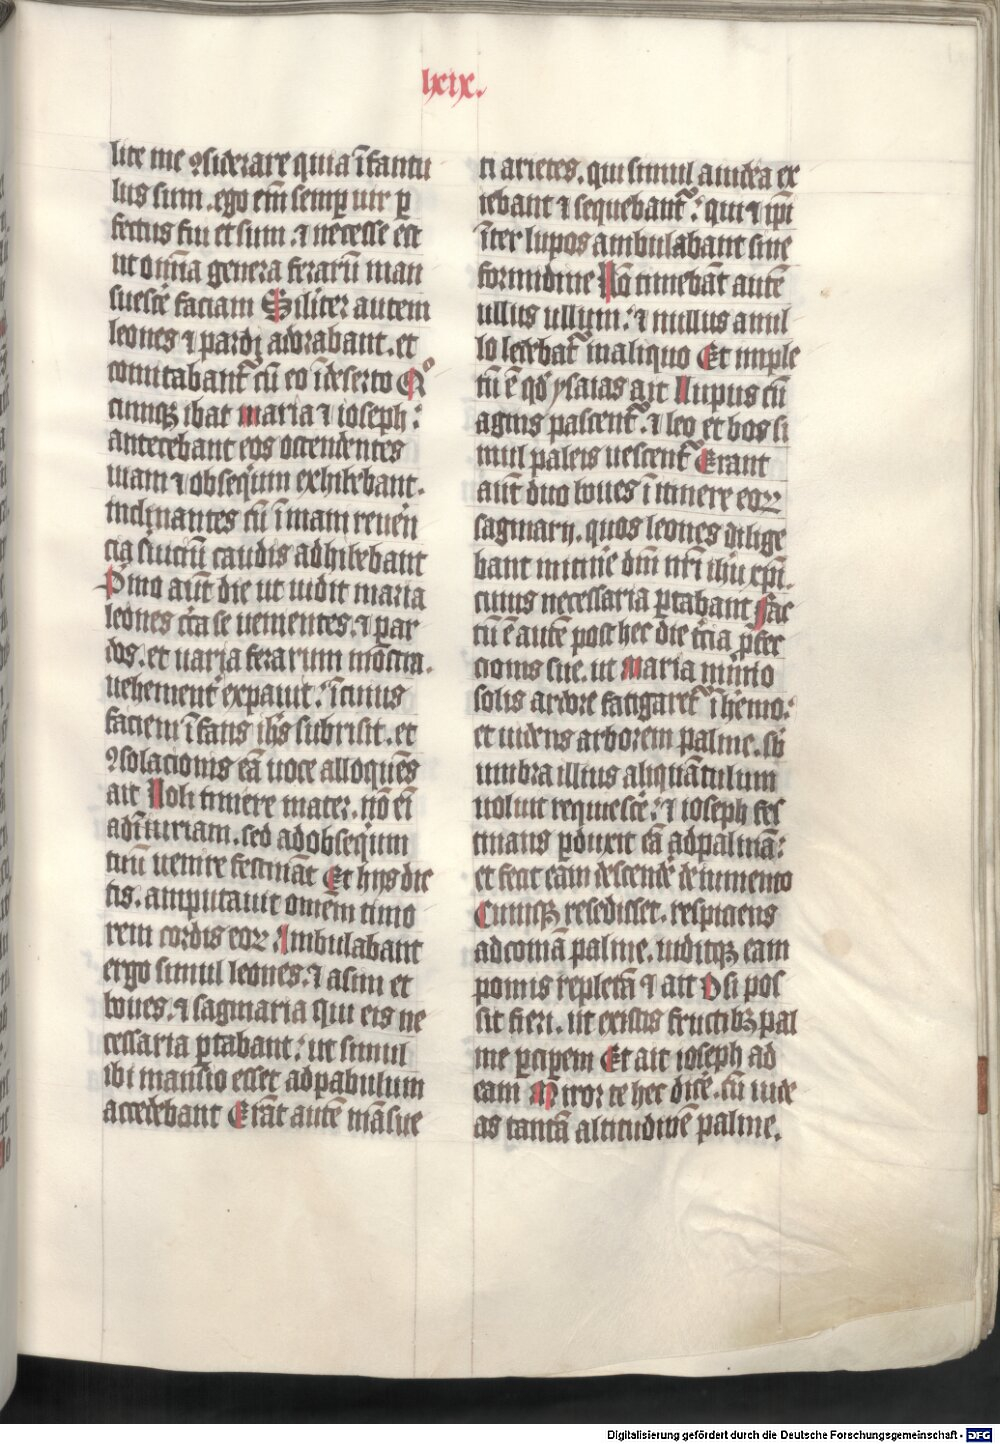 lxix.
lite me ꝯsiderare quia ĩfantu
lus sum. ego em̃ semꝑ uir ꝑ
fectus fui et sum. ⁊ necesse est
ut om̃ia genera ferarũ man
suescẽ faciam Siliter autem
leones ⁊ pardi adorabant. et
comitabant᷑ cũ eo ĩ deserto Qͦ
cumqꝫ ibat maria ⁊ ioseph :
antecebant eos ostendentes
uiam ⁊ obsequium exhibebant.
inclinantes cũ ĩmam reuerẽ
cia suicũ caudis adhibebant
Pͥmo aũt die ut uidit maria
leones cͥca se uenientes. ⁊ par
dos. et uaria ferarum mõstra.
uehement᷑ expauit : ĩ cuius
faciem ĩfans ihs̄ subrisit. et
ꝯsolacionis eã uoce alloquẽs
ait Noli timere mater. nõ em̃
ad ĩiuriam. sed ad obsequium
tuũ uenire festinãt Et hijs dic
tis. amputauit omẽm timo
rem cordis eoꝝ Ambulabant
ergo simul leones. ⁊ asini et
boues. ⁊ sagmaria qui eis ne
cessaria ꝑtabant : ut simul
ibi mansio esset ad pabulum
accedebant Erãt autẽ mãsue
ti arietes. qui simul a iudea ex
iebant ⁊ sequebant᷑ : qui ⁊ ip̃i
ĩter lupos ambulabant sine
formidine Nõ timebãt autẽ
ullus ullum : ⁊ nullus a nul
lo ledebat᷑ in aliquo Et imple
tũ ẽ qd̛ ysaias ait Lupus cũ
agnis pascent᷑. ⁊ leo et bos si
mul paleis uescent᷑ Erant
aũt duo boues ĩ itinere eoꝝ
sagmarij. quos leones dilige
bant itinẽ dñi nr̃i ihũ xp̃i.
cuius necessaria ꝑtabant Fac
tũ ẽ autẽ post hec die tͥcia ꝓfec
cionis sue. ut Maria nimio
solis ardore fatigaret᷑ ĩ hẽmo :
et uidens arborem palme. sb̛
umbra illius aliquãtulum
uoluit requiescẽ : ⁊ ioseph fes
tinans ꝑduxit eã ad palmã :
et fecit eam descendẽ de iumento
Cumqꝫ resedisset. respiciens
ad comã palme. uiditqꝫ eam
pomis repletã ⁊ ait O si pos
sit fieri. ut ex istis fructibꝫ pal
me ꝑcipem Et ait ioseph ad
eam Miror te hec dicẽ. cũ uide
as tantã altitudinẽ palme.
Digitalisierung gefördert durch die Deutsche Forschungsgemeinschaft - DFG